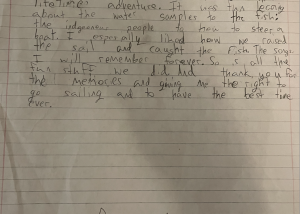 lifetimes adventure. It was fun
about the water sampler to the fish.
the people to how to steer a
boat. I especially liked how we raised
the sail and caught the fish. The songs
I will remember forever. So
fun stuff we did thank you for
the memories and giving me the right to
go sailing and to have the best time
ever.